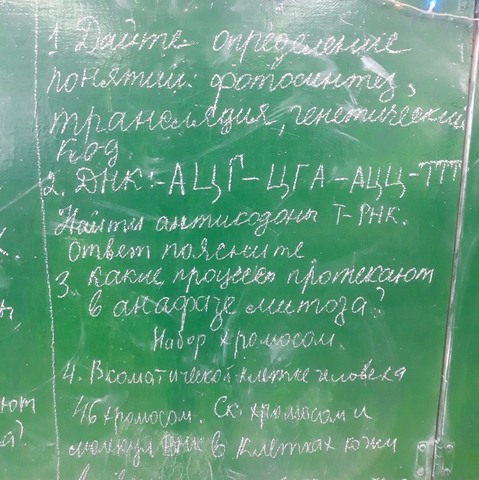 1 Дайте определение
понятий: фотосинтез,
трансляция, генетический
код.
2. ДНК: -АЦГ-ЦГА-АЦЦ-ТТТ
Найти антикодоны Т-РНК.
ответ поясните
3. какие процессы протекают
в анафазе митоза?
Набор хромосом.
4. В соматической клетке человека
46 хромосом. Ск. хромосом и
молекул ДНК в клетках кожи